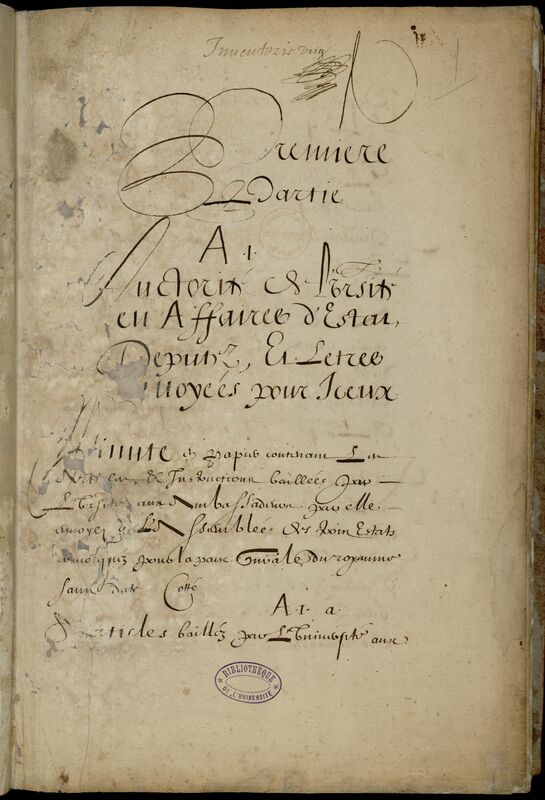 Inventorie
1
Premiere
Partie
A 1.
Auctorité de l'vrsité
en Affaires d'Estat,
Deputez, Et Letres
envoyées pour Iceux
Minute en papier contenant Les
Instructions baillées par
L'vrsité aux Ambassadeurs par elle
envoyez L'Assemblée des trois Estats
pour la paix Gnâle du royaume
sans date Cotté
A. 1. a
Articles baillez par L'vniuersité aux
BIBLIOTHEQUE
DE L'UNIVERSITÉ